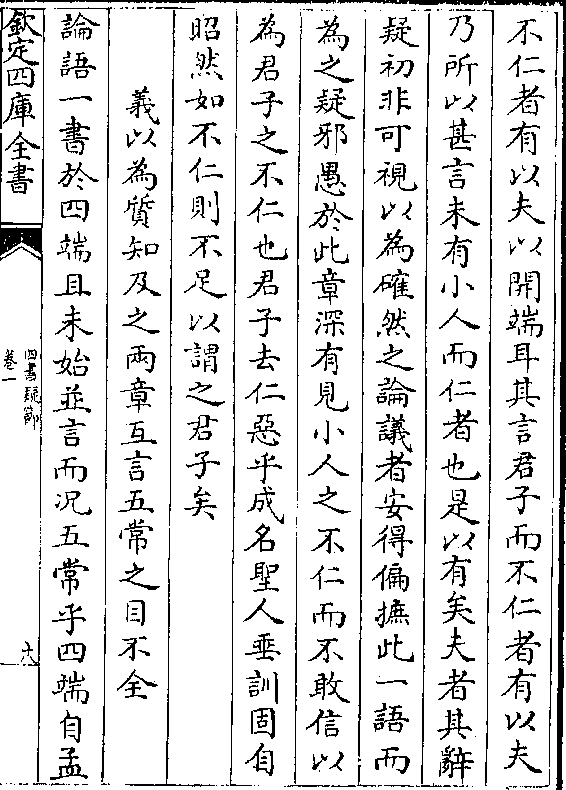 不仁者有以夫以開端耳其言君子而不仁者有以夫
乃所以甚言未有小人而仁者也是以有矣夫者其辭
疑初非可視以為確然之論議者安得偏摭此一語而
為之疑邪愚於此章深有見小人之不仁而不敢信以
為君子之不仁也君子去仁惡乎成名聖人垂訓固自
昭然如不仁則不足以謂之君子矣
義以為質知及之兩章互言五常之目不全
論語一書於四端且未始並言而況五常乎四端自孟
欽定四庫全書
四書疑節
卷一
六